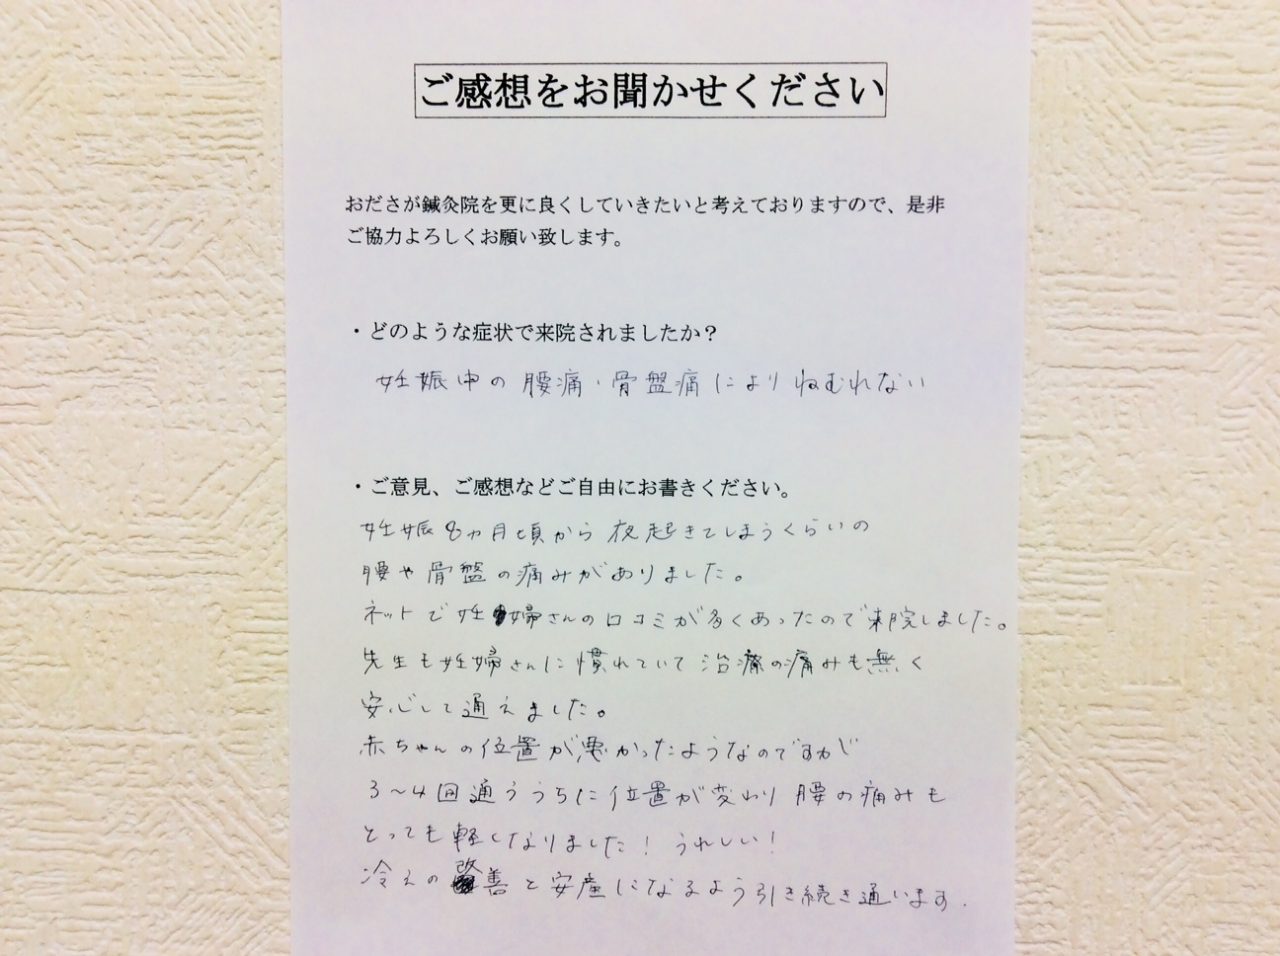 ご感想をお聞かせください
おださが鍼灸院を更に良くしていきたいと考えておりますので、是非
ご協力よろしくお願い致します。
・どのような症状で来院されましたか？
妊娠中の腰痛・骨盤痛によりねむれない
・ご意見、ご感想などご自由にお書きください。
妊娠8ヵ月頃から夜起きてしまうくらいの
腰や骨盤の痛みがありました。
ネットで妊婦さんの口コミが多くあったので来院しました。
先生も妊婦さんに慣れていて治療の痛みも無く
安心して通えました。
赤ちゃんの位置が悪かったようなのですが
3〜4回通ううちに位置が変わり腰の痛みも
とっても軽くなりました！うれしい！
冷えの改善と安産になるよう引き続き通います.